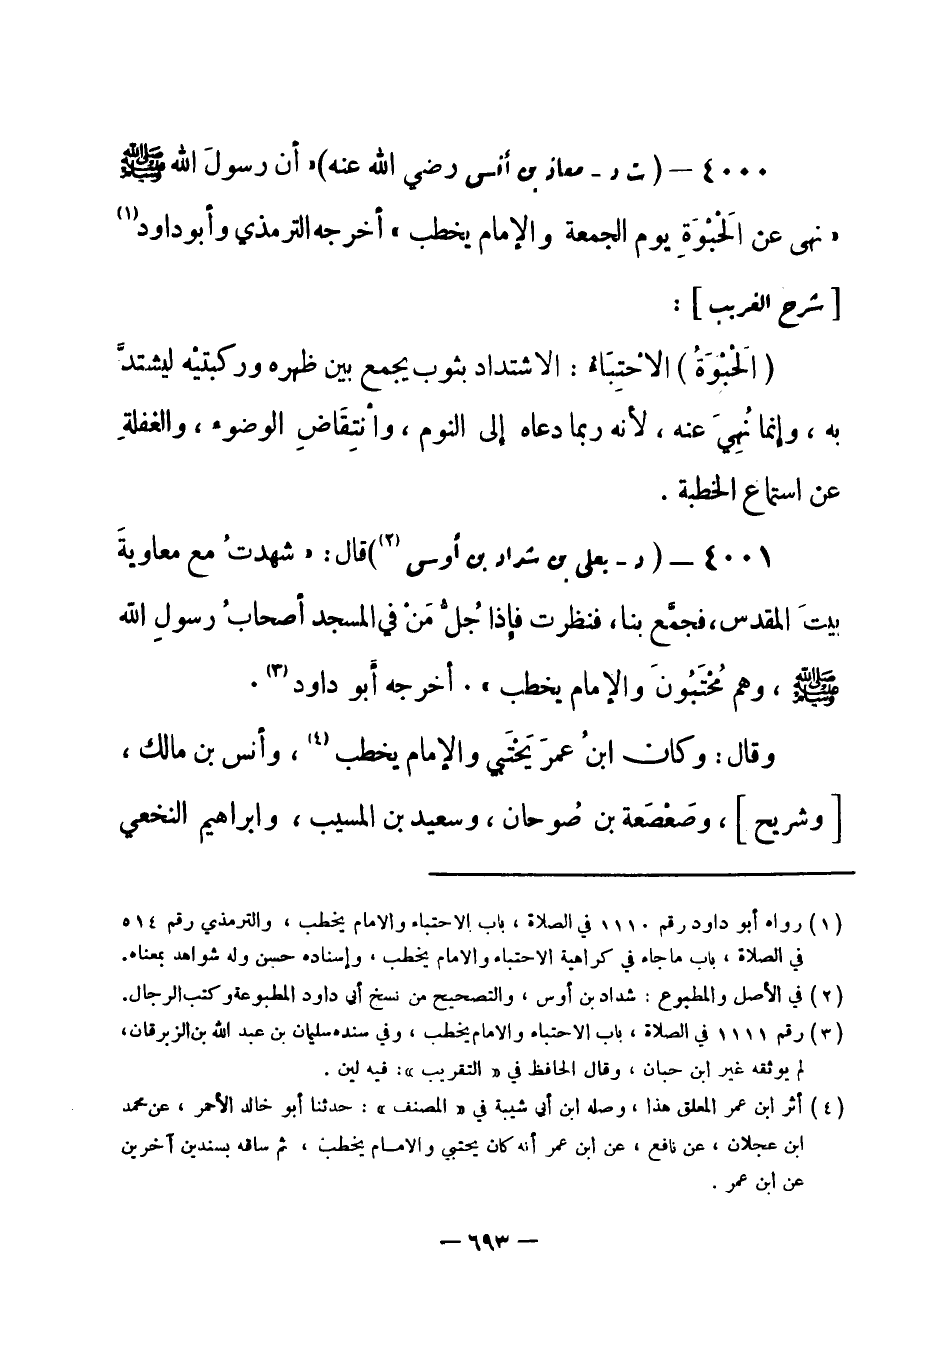 ٤٠٠٠ — ( ت د ـ معاذ بن أنس رضي الله عنه )« أن رسولَ الله ﷺ
« نهى عن الْحَبْوَةِ يوم الجمعة والإمام يخطب » أخرجه الترمذي وأبو داود(١)
[ شرح الغريب ] :
( الْحَبْوَةُ ) الاحْتِبَاء : الاشتداد بثوب يجمع بين ظهره وركبتيْه ليشتدَّ
به ، وإنما نُهِيَ عنه ، لأنه ربما دعاه إلى النوم ، وانْتِقَاضِ الوضوء ، والغفلةِ
عن استماع الخطبة .
٤٠٠١ — ( د ـ يعلى بن شداد بن أوس (٢) )قال : « شهدتُ مع معاويةَ
بيتَ المقدس ، فجمَّع بنا ، فنظرت فإذا جُلُّ مَنْ في المسجد أصحابُ رسولِ الله
ﷺ ، وهم مُحْتَبُونَ والإمام يخطب » . أخرجه أبو داود (٣) .
وقال : وكان ابنُ عمرَ يَحْتَبي والإمام يخطب (٤) ، وأنس بن مالك ،
[ وشريح ] ، وصَعْصَعة بن صُوحان ، وسعيد بن المسيب ، وابراهيم النخعي
(١) رواه أبو داود رقم ١١١٠ في الصلاة ، باب الاحتباء والامام يخطب ، والترمذي رقم ٥١٤
في الصلاة ، باب ماجاء في كراهية الاحتباء والامام يخطب ، وإسناده حسن وله شواهد بمعناه.
(٢) في الأصل والمطبوع : شداد بن أوس ، والتصحيح من نسخ أبي داود المطبوعة وكتب الرجال.
(٣) رقم ١١١١ في الصلاة ، باب الاحتباء والامام يخطب ، وفي سنده سليمان بن عبد الله بن الزبرقان،
لم يوثقه غير ابن حبان ، وقال الحافظ في « التقريب » : فيه لين .
(٤) أثر ابن عمر المعلق هذا ، وصله ابن أبي شيبة في « المصنف » : حدثنا أبو خالد الأحمر ، عن محمد
ابن عجلان ، عن نافع ، عن ابن عمر أنه كان يحتبي والامام يخطب ، ثم ساقه بسندين آخرين
عن ابن عمر .
— ٦٩٣ —